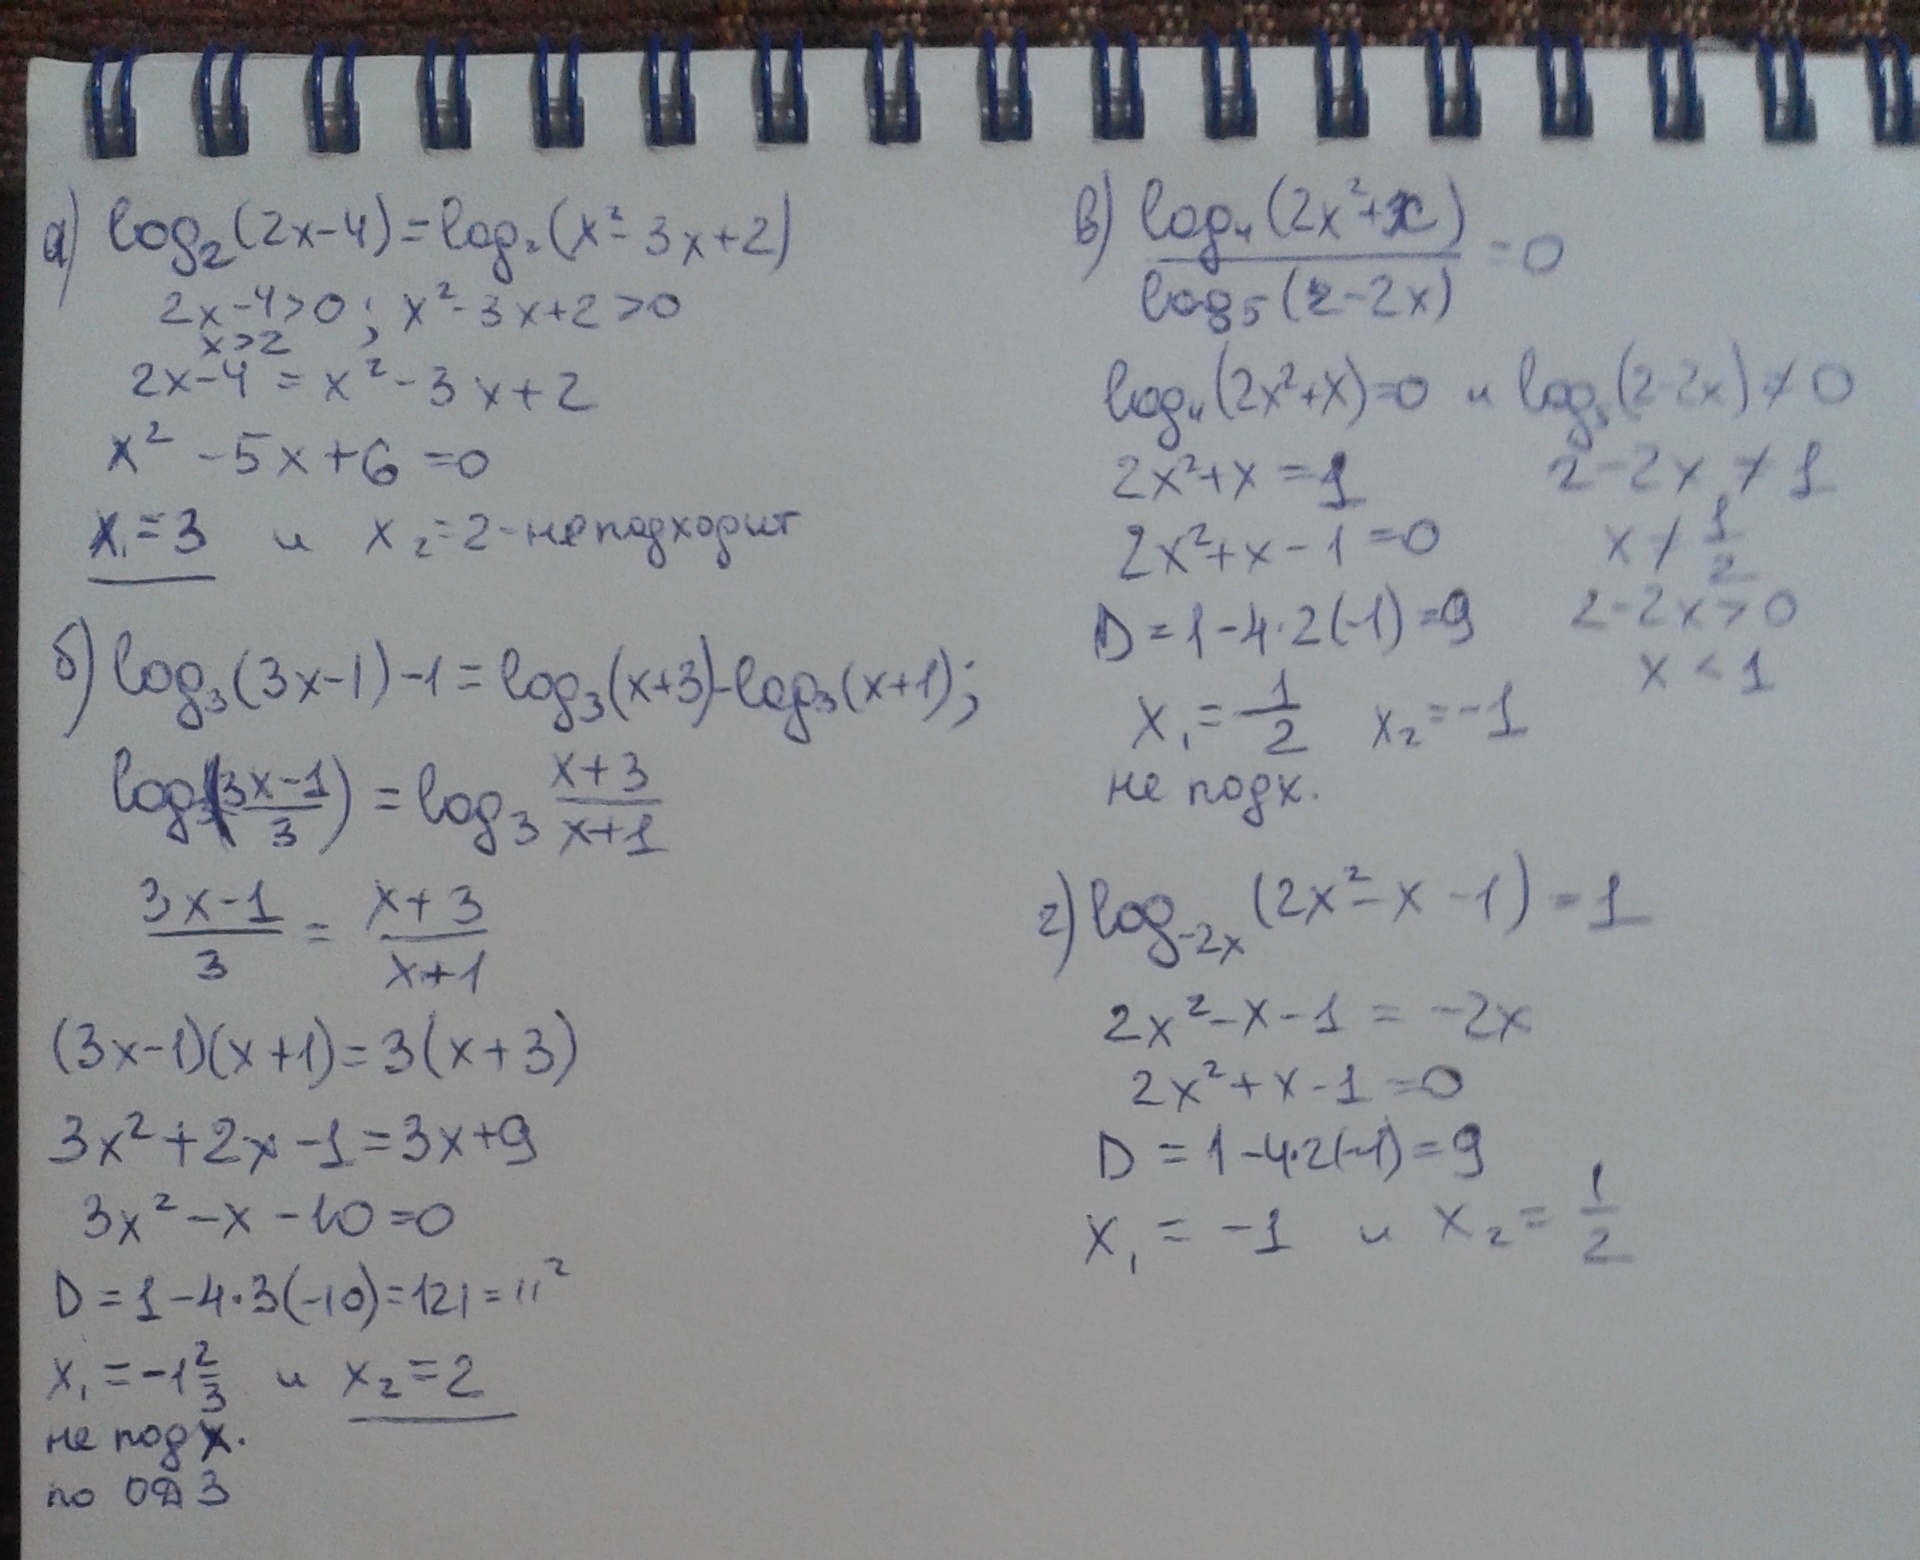 а) log₂(2x-4)=log₂(x²-3x+2)
2x-4>0; x²-3x+2>0
x>2
2x-4=x²-3x+2
x²-5x+6=0
x₁=3 и x₂=2-не подходит
б) log₃(3x-1)-1=log₃(x+3)-log₃(x+1);
log₃((3x-1)/3)=log₃ (x+3)/(x+1)
(3x-1)/3 = (x+3)/(x+1)
(3x-1)(x+1)=3(x+3)
3x²+2x-1=3x+9
3x²-x-10=0
D=1-4·3(-10)=121=11²
x₁=-1 2/3 и x₂=2
не подх.
по ОДЗ
в) log₄(2x²+x)/log₅(2-2x)=0
log₄(2x²+x)=0 и log₅(2-2x)≠0
2x²+x=1 2-2x≠1
2x²+x-1=0 x≠1/2
D=1-4·2(-1)=9 2-2x>0
x<1
x₁=1/2 x₂=-1
не подх.
г) log₋₂ₓ(2x²-x-1)=1
2x²-x-1=-2x
2x²+x-1=0
D=1-4·2(-1)=9
x₁=-1 и x₂=1/2